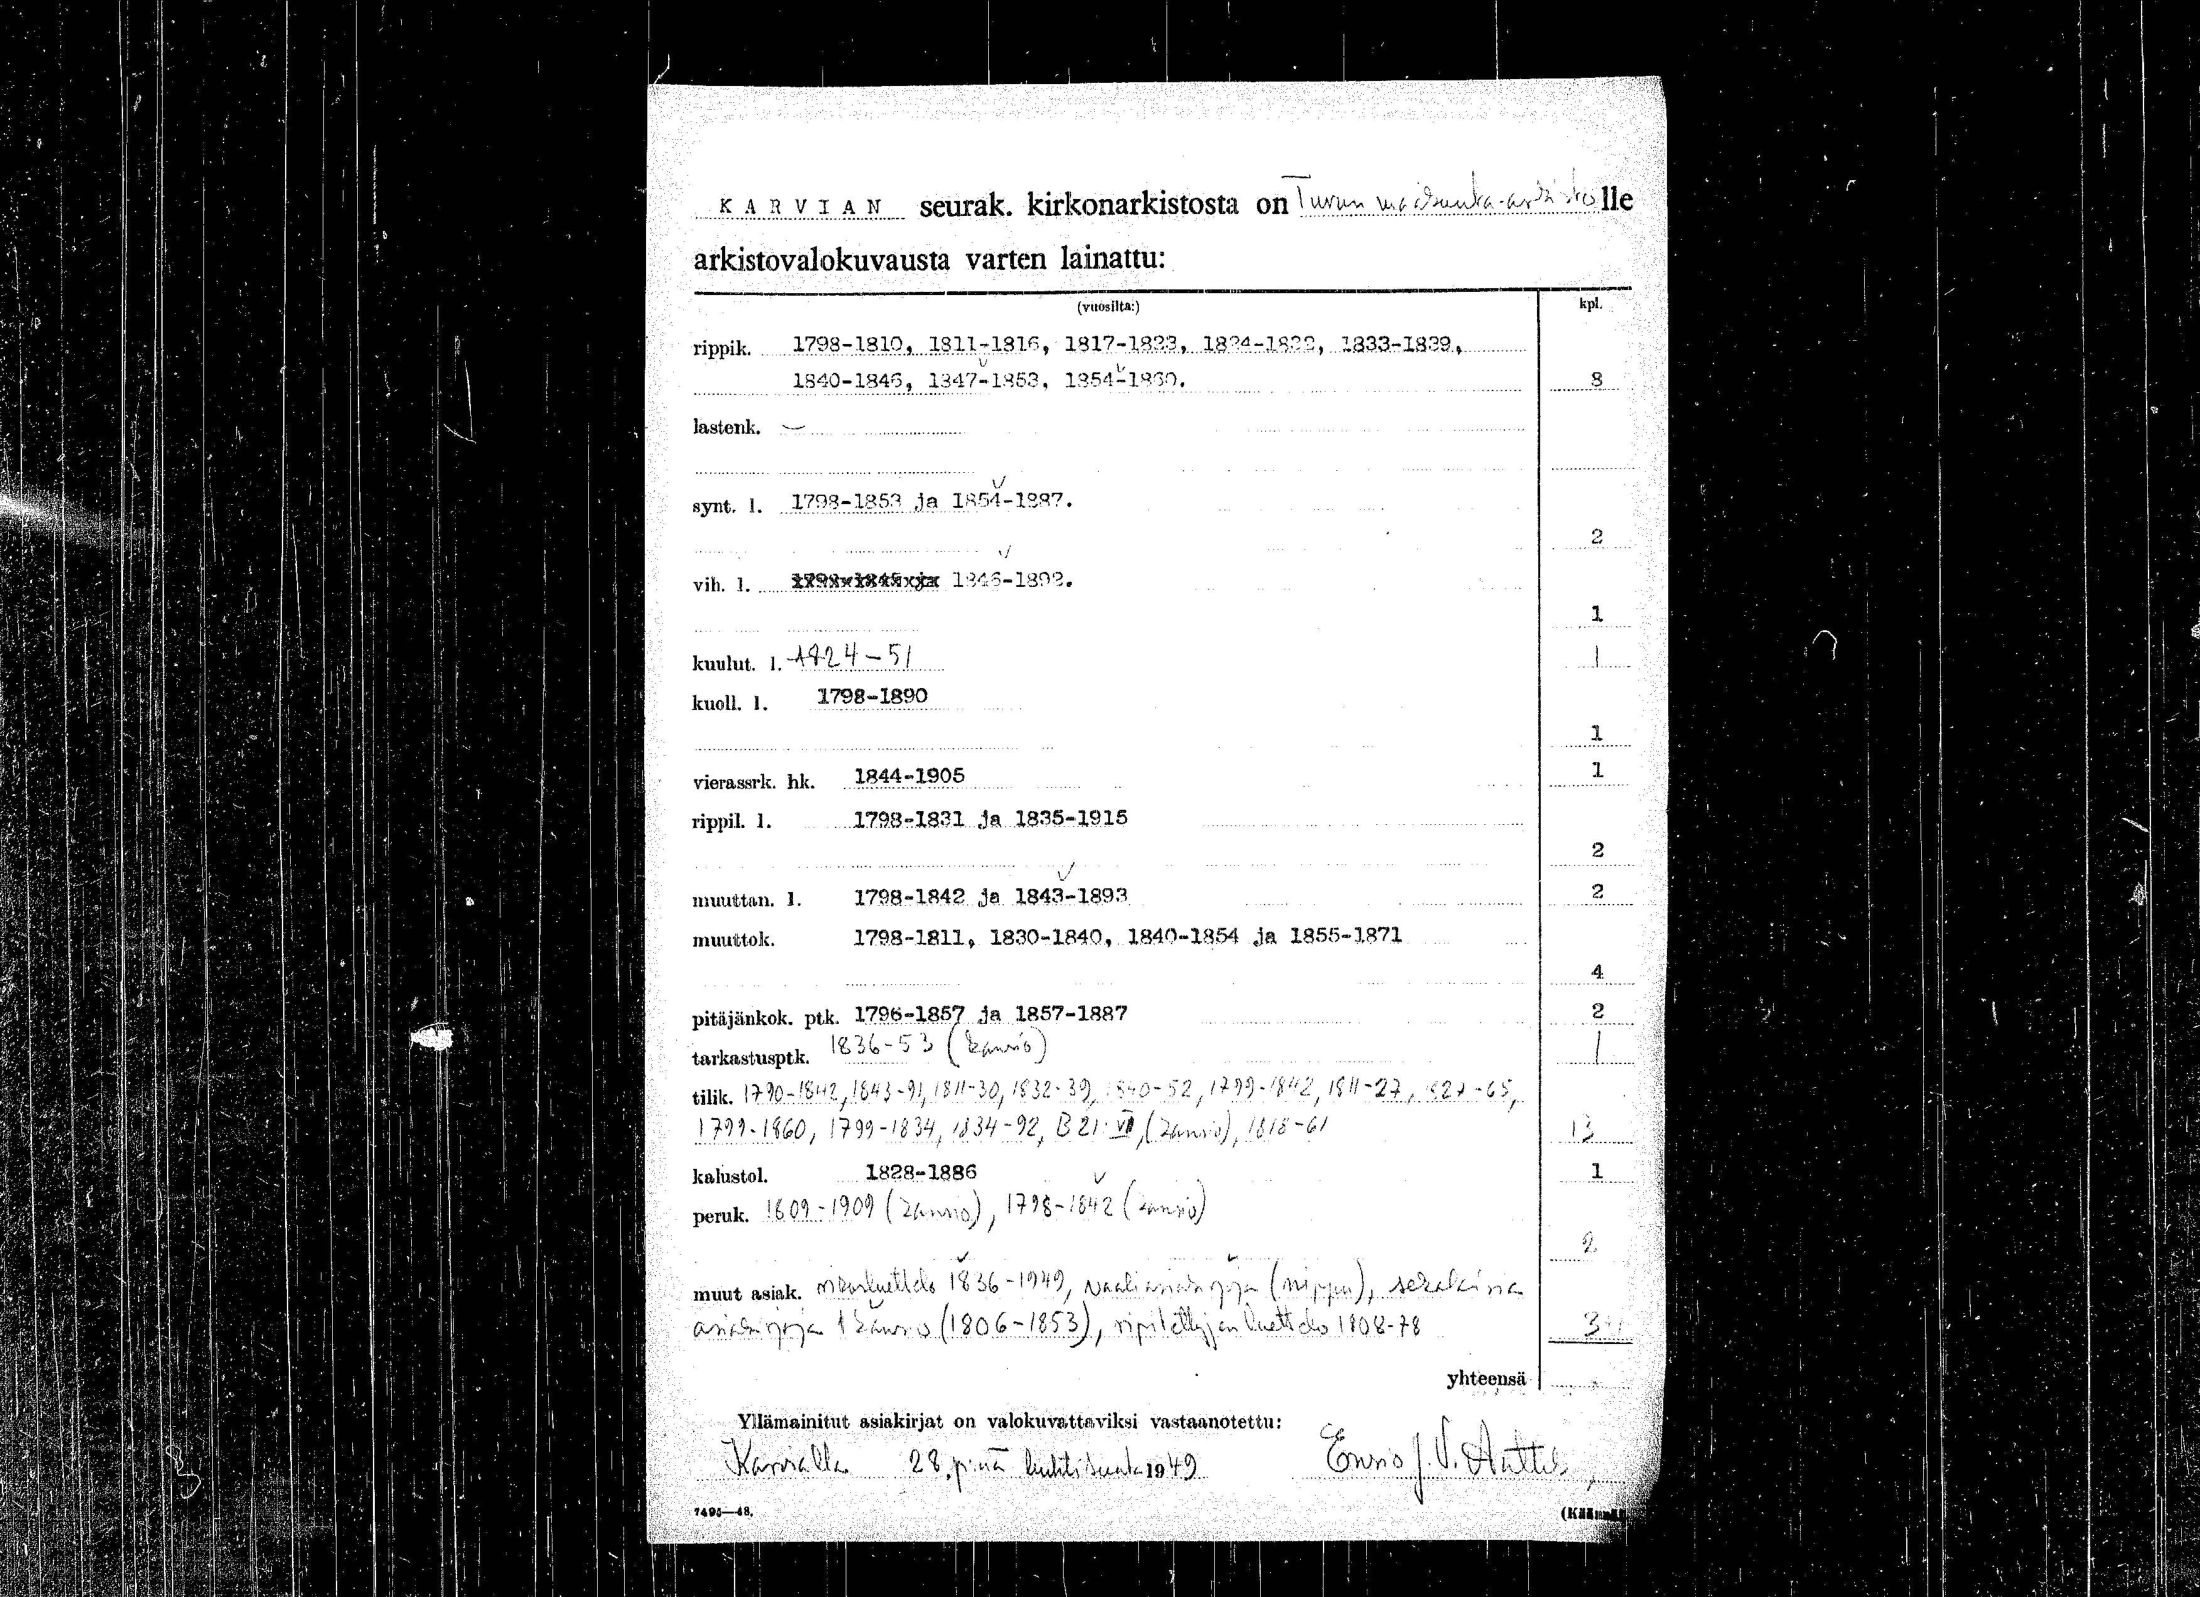 KARVIAN seurak. kirkonarkistosta on Turun maakunta-arkistolle
arkistovalokuvausta varten lainattu:
(vuosilta:) kpl.
rippik. 1798-1810, 1811-1816, 1817-1823, 1824-1832, 1833-1839,
1840-1846, 1847-1853, 1854-1860. 8
lastenk. —
synt. l. 1798-1853 ja 1854-1887.
2
vih. l. 1798-1845 ja 1846-1892.
1
kuulut. l. 1824-51 1
kuoll. l. 1798-1890
1
vierassrk. hk. 1844-1905 1
rippil. l. 1798-1831 ja 1835-1915
2
muuttan. l. 1798-1842 ja 1843-1893 2
muuttok. 1798-1811, 1830-1840, 1840-1854 ja 1855-1871
4
pitäjänkok. ptk. 1796-1857 ja 1857-1887 2
tarkastusptk. 1836-53 (kansio) 1
tilik. 1790-1842, 1843-91, 1811-30, 1832-39, 1840-52, 1799-1842, 1811-27, 1827-65,
1799-1860, 1799-1834, 1834-92, B 21: VI, (kansio), 1818-61 13
kalustol. 1828-1886 1
peruk. 1809-1909 (kansio), 1798-1842 (kansio)
2
muut asiak. 1836-1949, vaaliasiakirjoja (nippu), sekalaisia
asiakirjoja 1 kansio (1806-1853), ripitettyjen luettelo 1808-78 3
yhteensä
Yllämainitut asiakirjat on valokuvattaviksi vastaanotettu:
Karvialla 28. p:nä huhtikuuta 1949 J. V.
7495—48. (Käännä)